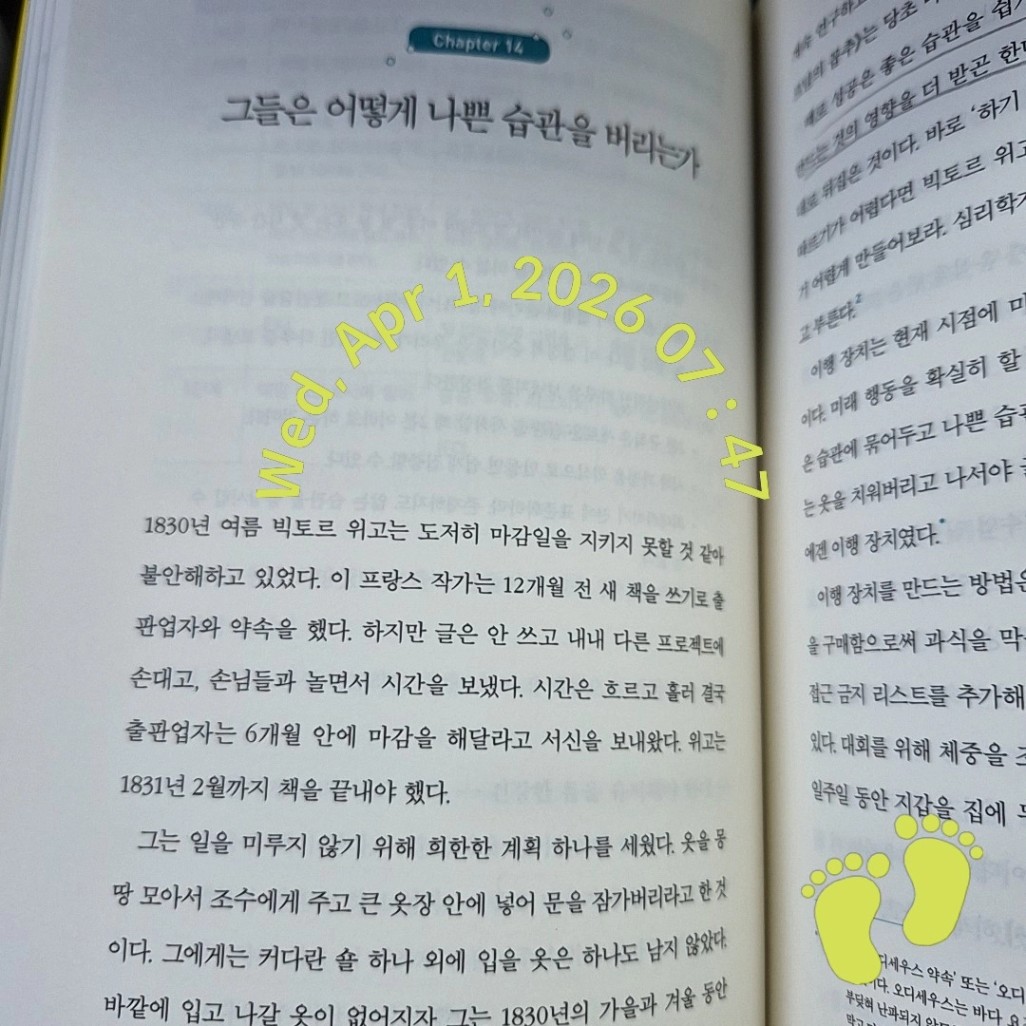 Chapter 14
그들은 어떻게 나쁜 습관을 버리는가
Wed, Apr 1, 2026 07 : 47
1830년 여름 빅토르 위고는 도저히 마감일을 지키지 못할 것 같아
불안해하고 있었다. 이 프랑스 작가는 12개월 전 새 책을 쓰기로 출
판업자와 약속을 했다. 하지만 글은 안 쓰고 내내 다른 프로젝트에
손대고, 손님들과 놀면서 시간을 보냈다. 시간은 흐르고 흘러 결국
출판업자는 6개월 안에 마감을 해달라고 서신을 보내왔다. 위고는
1831년 2월까지 책을 끝내야 했다.
그는 일을 미루지 않기 위해 희한한 계획 하나를 세웠다. 옷을 몽
땅 모아서 조수에게 주고 큰 옷장 안에 넣어 문을 잠가버리라고 한 것
이다. 그에게는 커다란 숄 하나 외에 입을 옷은 하나도 남지 않았다.
바깥에 입고 나갈 옷이 없어지자 그는 1830년의 가을과 겨울 동안
계속 연구하고
는 당초
성공은 좋은 습관을 쉽게
만드는 것의 영향을 더 받곤 한다
뒤집은 것이다. 바로 ‘하기
따르기가 어렵다면 빅토르 위고
가 어렵게 만들어보라. 심리학자
고 부른다.2
이행 장치는 현재 시점에 미
이다. 미래 행동을 확실히 할
은 습관에 묶어두고 나쁜 습관
는 옷을 치워버리고 나서야 글
에겐 이행 장치였다.*
이행 장치를 만드는 방법은
을 구매함으로써 과식을 막
접근 금지 리스트를 추가해
있다. 대회를 위해 체중을 조
일주일 동안 지갑을 집에 두
디세우스 약속’ 또는 ‘오디
이다. 오디세우스는 바다 요
부딪혀 난파되지 않